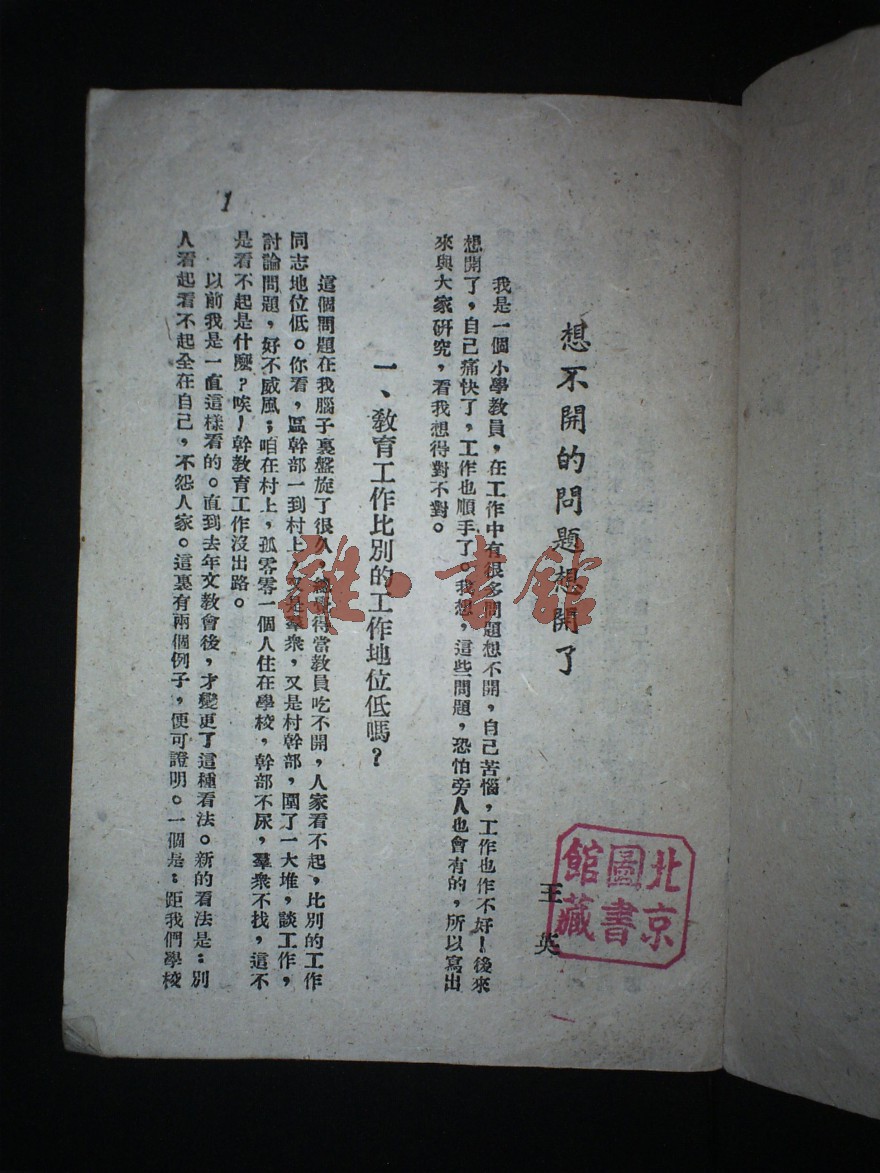 想不開的問題想開了
王英
我是一個小學教員，在工作中有很多問題想不開，自己苦惱，工作也作不好！後來
想開了，自己痛快了，工作也順手了。我想，這些問題，恐怕旁人也會有的，所以寫出
來與大家研究，看我想得對不對。
一、教育工作比別的工作地位低嗎？
這個問題在我腦子裏盤旋了很久，總覺得當教員吃不開，人家看不起，比別的工作
同志地位低。你看，區幹部一到村上，又是羣衆，又是村幹部，圍了一大堆，談工作，
討論問題，好不威風；咱在村上，孤零零一個人住在學校，幹部不尿，羣衆不找，這不
是看不起是什麼？唉！幹教育工作沒出路。
以前我是一直這樣看的。直到去年文教會後，才變更了這種看法。新的看法是：別
人看起看不起全在自己，不怨人家。這裏有兩個例子，便可證明。一個是：距我們學校
1
北京
圖書
館藏
雜·書館